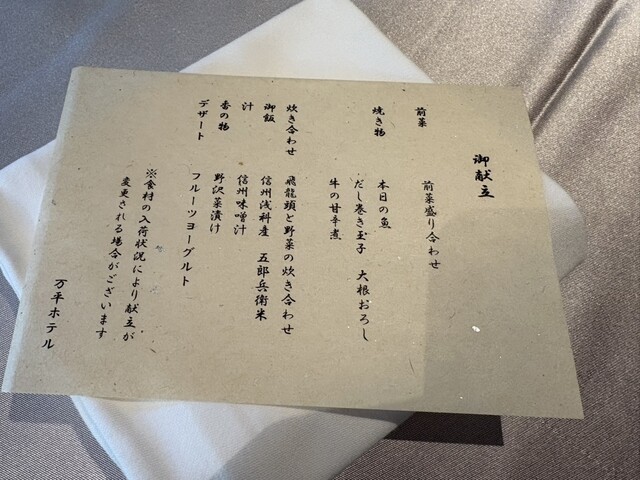 御献立
前菜 前菜盛り合わせ
焼き物 本日の魚
だし巻き玉子 大根おろし
牛の甘辛煮
炊き合わせ 飛龍頭と野菜の炊き合わせ
御飯 信州浅科産 五郎兵衛米
汁 信州味噌汁
香の物 野沢菜漬け
デザート フルーツヨーグルト
※食材の入荷状況により献立が
変更される場合がございます
万平ホテル